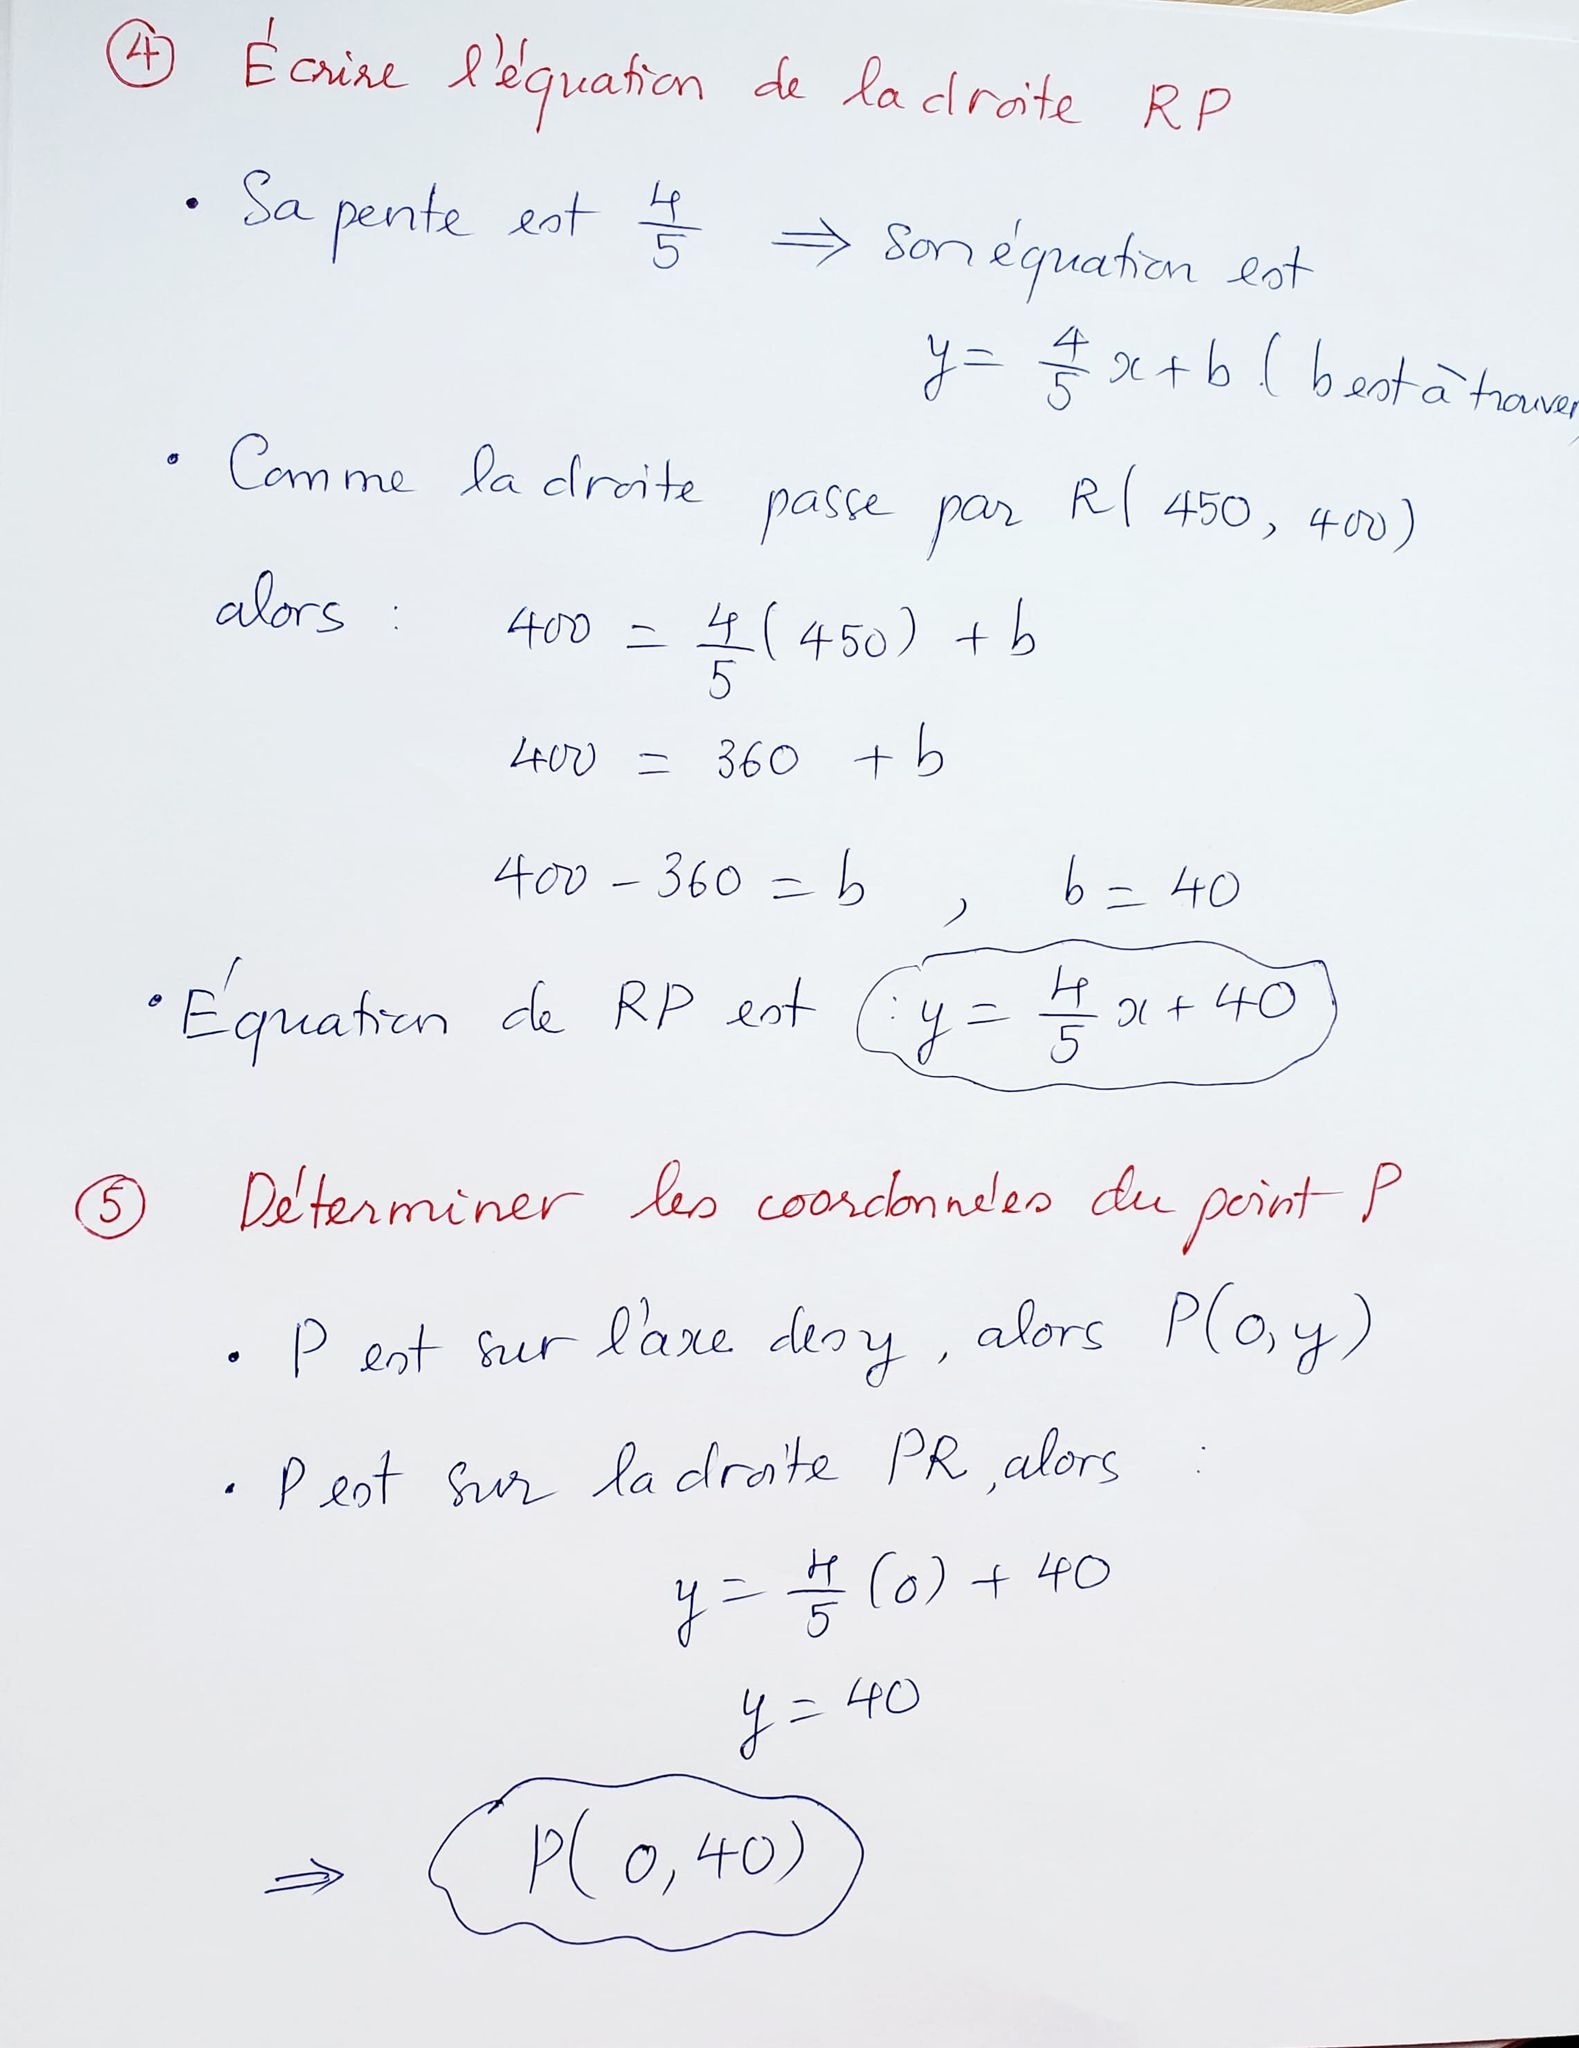 ④ Écrire l'équation de la droite RP
• Sa pente est 4/5 ⇒ son équation est
y = 4/5 x + b ( b est à trouver
• Comme la droite passe par R( 450, 400)
alors : 400 = 4/5 (450) + b
400 = 360 + b
400 - 360 = b , b = 40
• Équation de RP est : y = 4/5 x + 40
⑤ Déterminer les coordonnées du point P
• P est sur l'axe des y, alors P(0, y)
• P est sur la droite PR, alors :
y = 4/5 (0) + 40
y = 40
⇒ P( 0, 40)